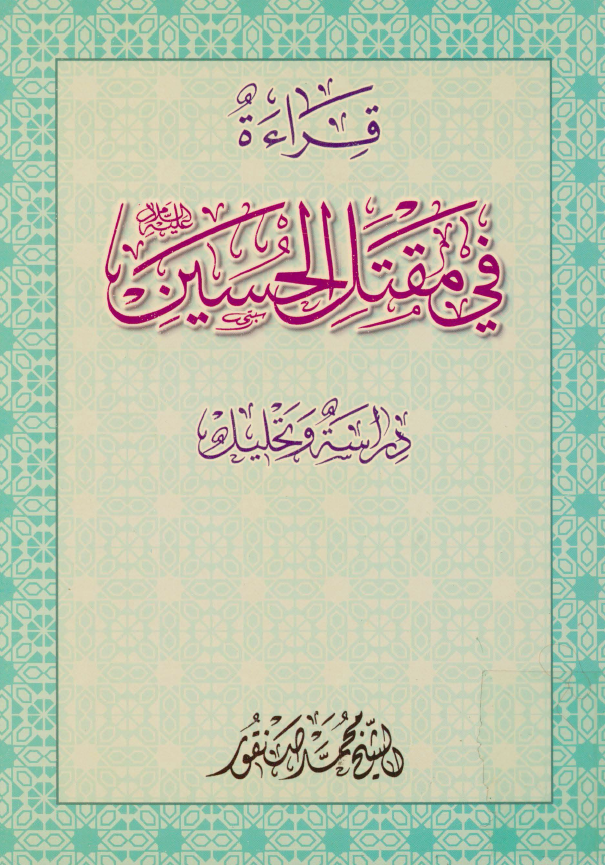 قِرَاءَةٌ
في مَقتَلِ الحُسَينِ عليه السلام
دِرَاسَةٌ وَتَحْليل
الشيخ محمد صنقور